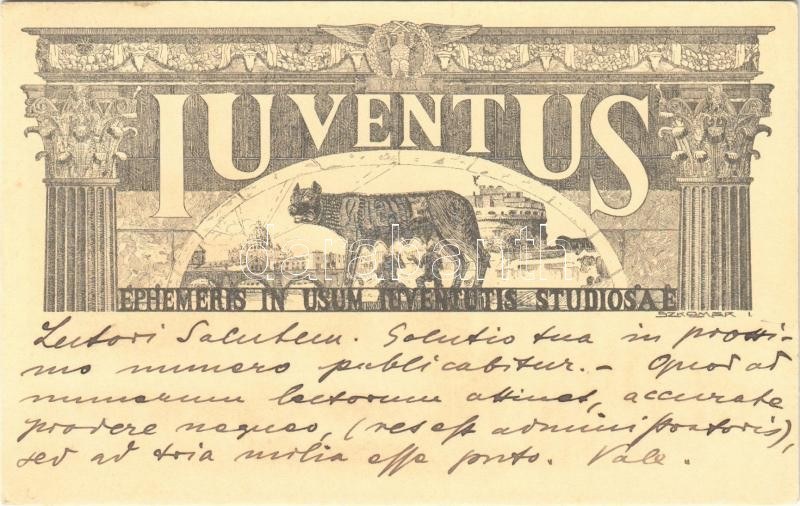 IUVENTUS
EPHEMERIS IN USUM IUVENTUTIS STUDIOSAE
SZKOMER I.
darabanth
Lectori Salutem. Solutio tua in proxi-
mo numero publicabitur. – Quod ad
numerum lectorum attinet, accurate
prodere nequeo, (res est administratoris),
sed ad tria milia esse puto. Vale.